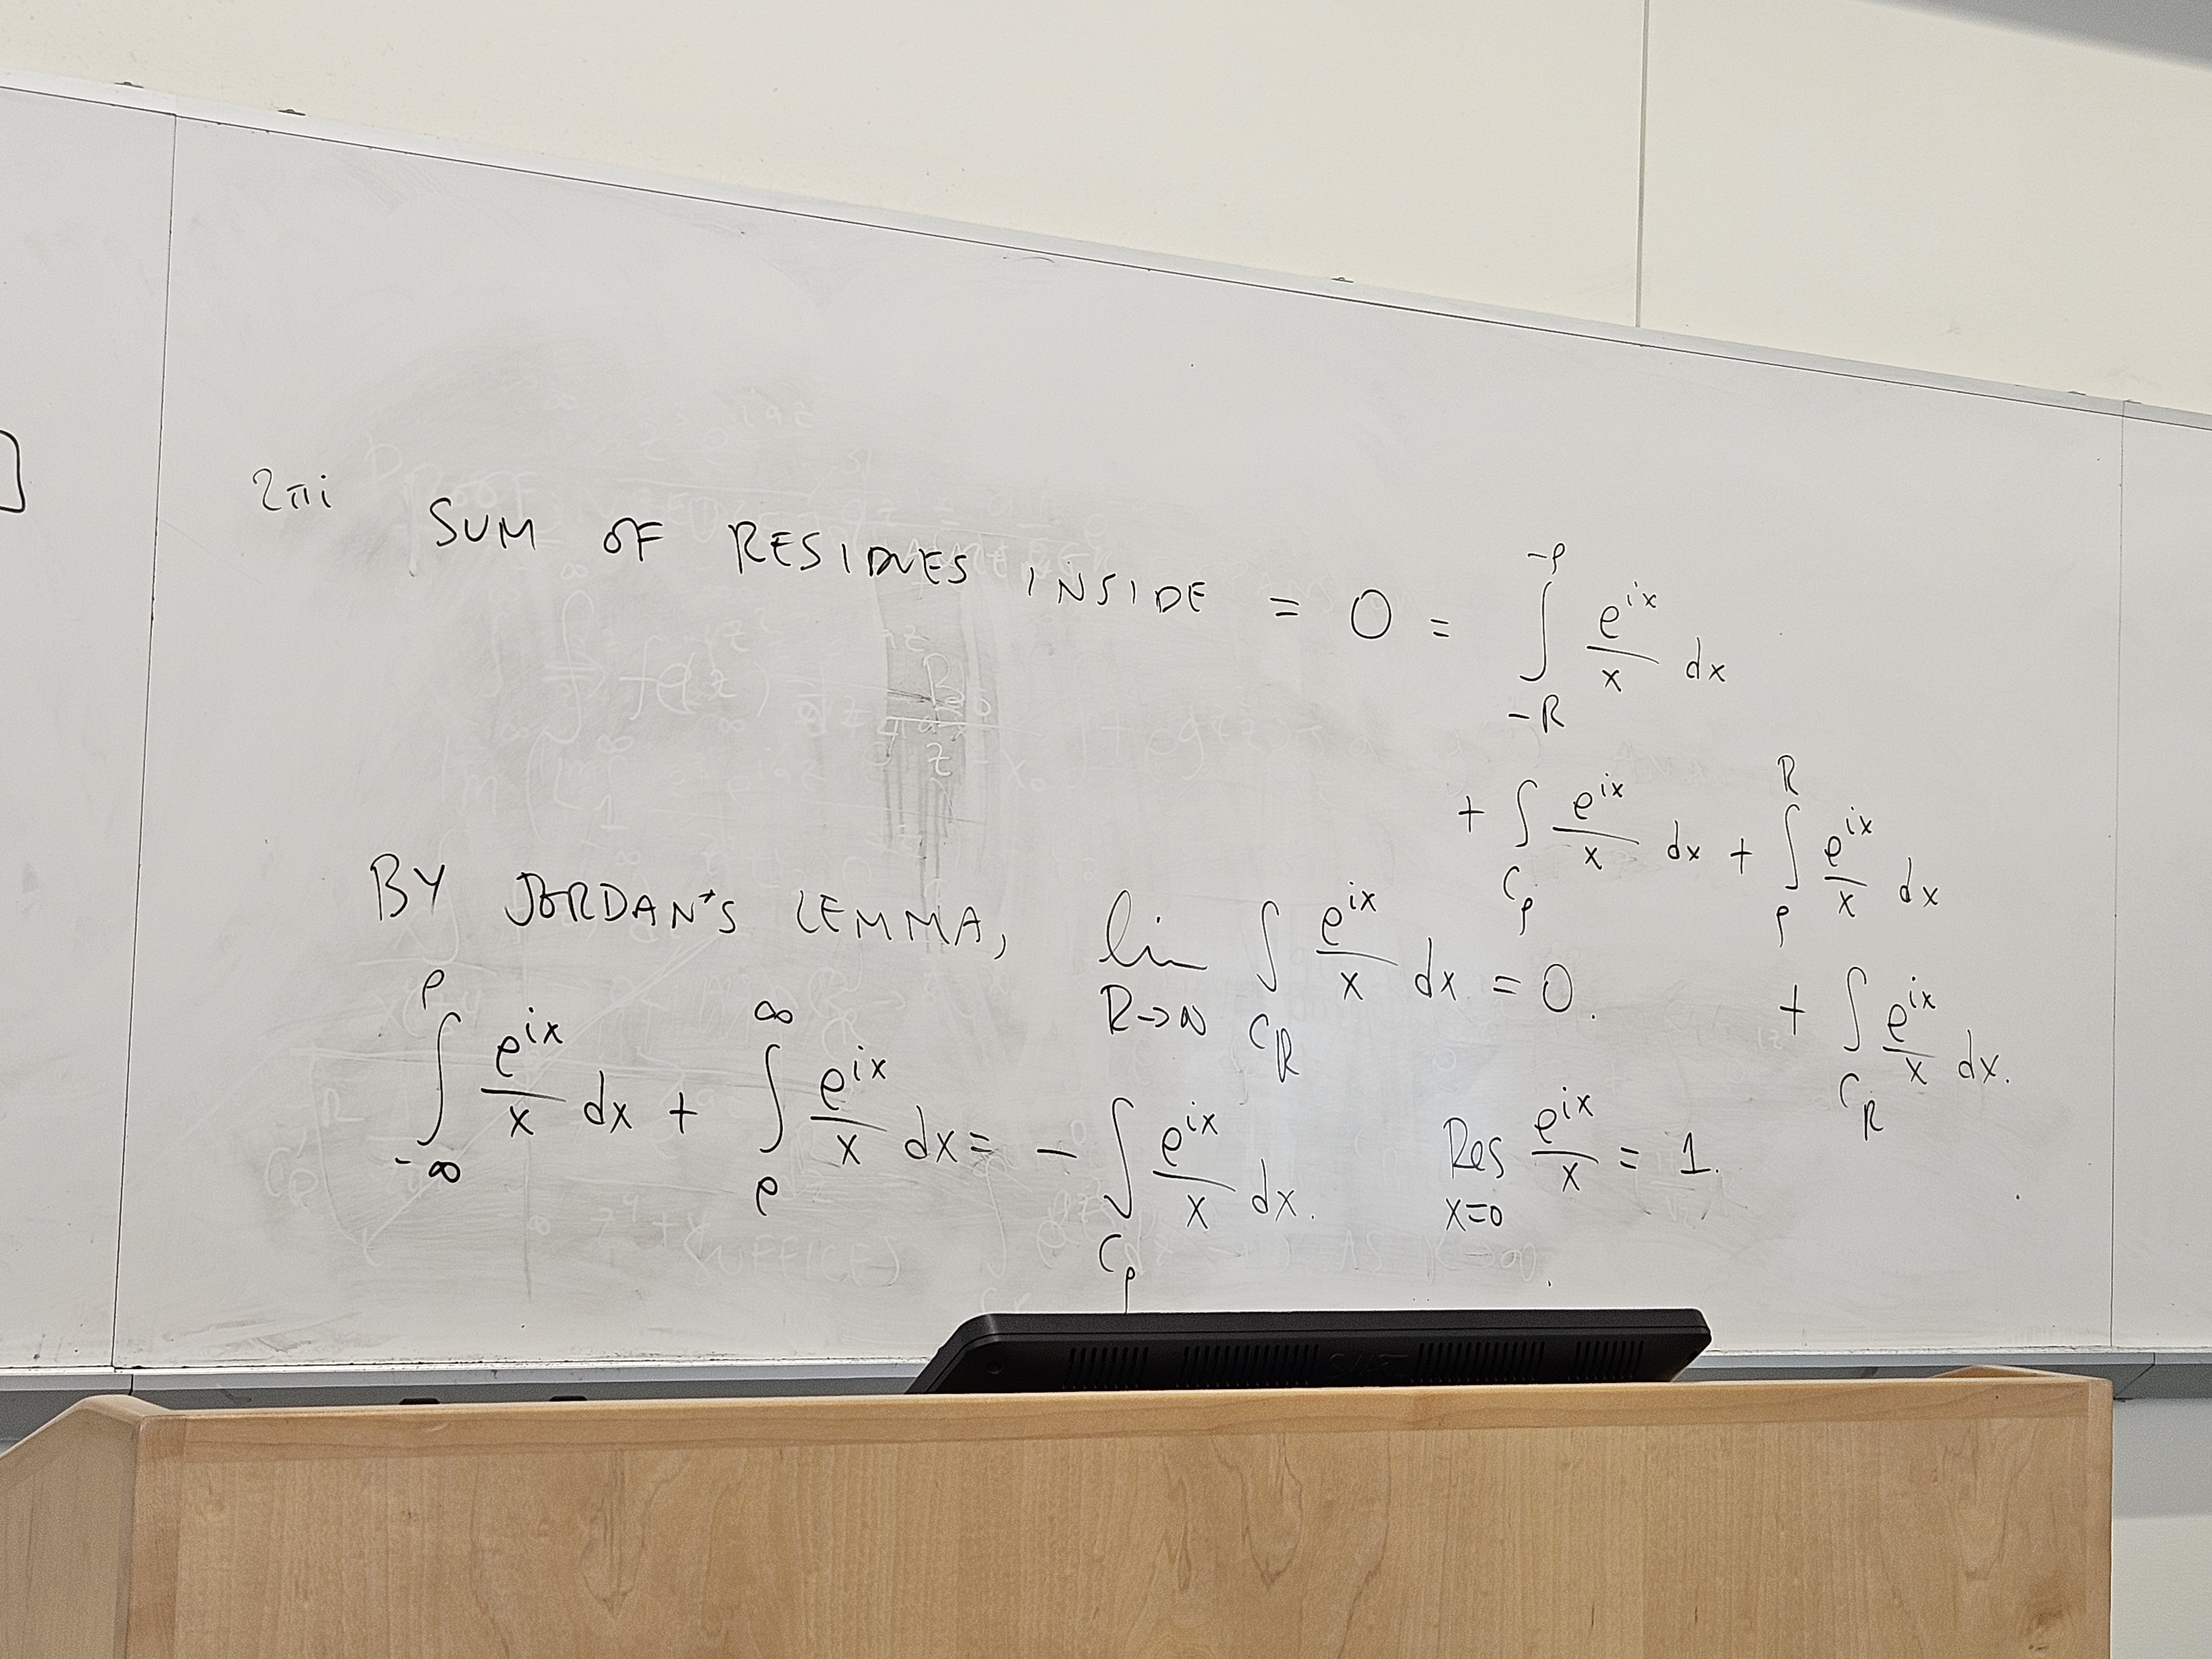 2πi SUM OF RESIDUES INSIDE = 0 = ∫_{-R}^{-ρ} e^{ix}/x dx
+ ∫_{C_ρ} e^{ix}/x dx + ∫_{ρ}^{R} e^{ix}/x dx
+ ∫_{C_R} e^{ix}/x dx.
BY JORDAN'S LEMMA, lim_{R→∞} ∫_{C_R} e^{ix}/x dx = 0.
∫_{-∞}^{ρ} e^{ix}/x dx + ∫_{ρ}^{∞} e^{ix}/x dx = - ∫_{C_ρ} e^{ix}/x dx. Res_{x=0} e^{ix}/x = 1.